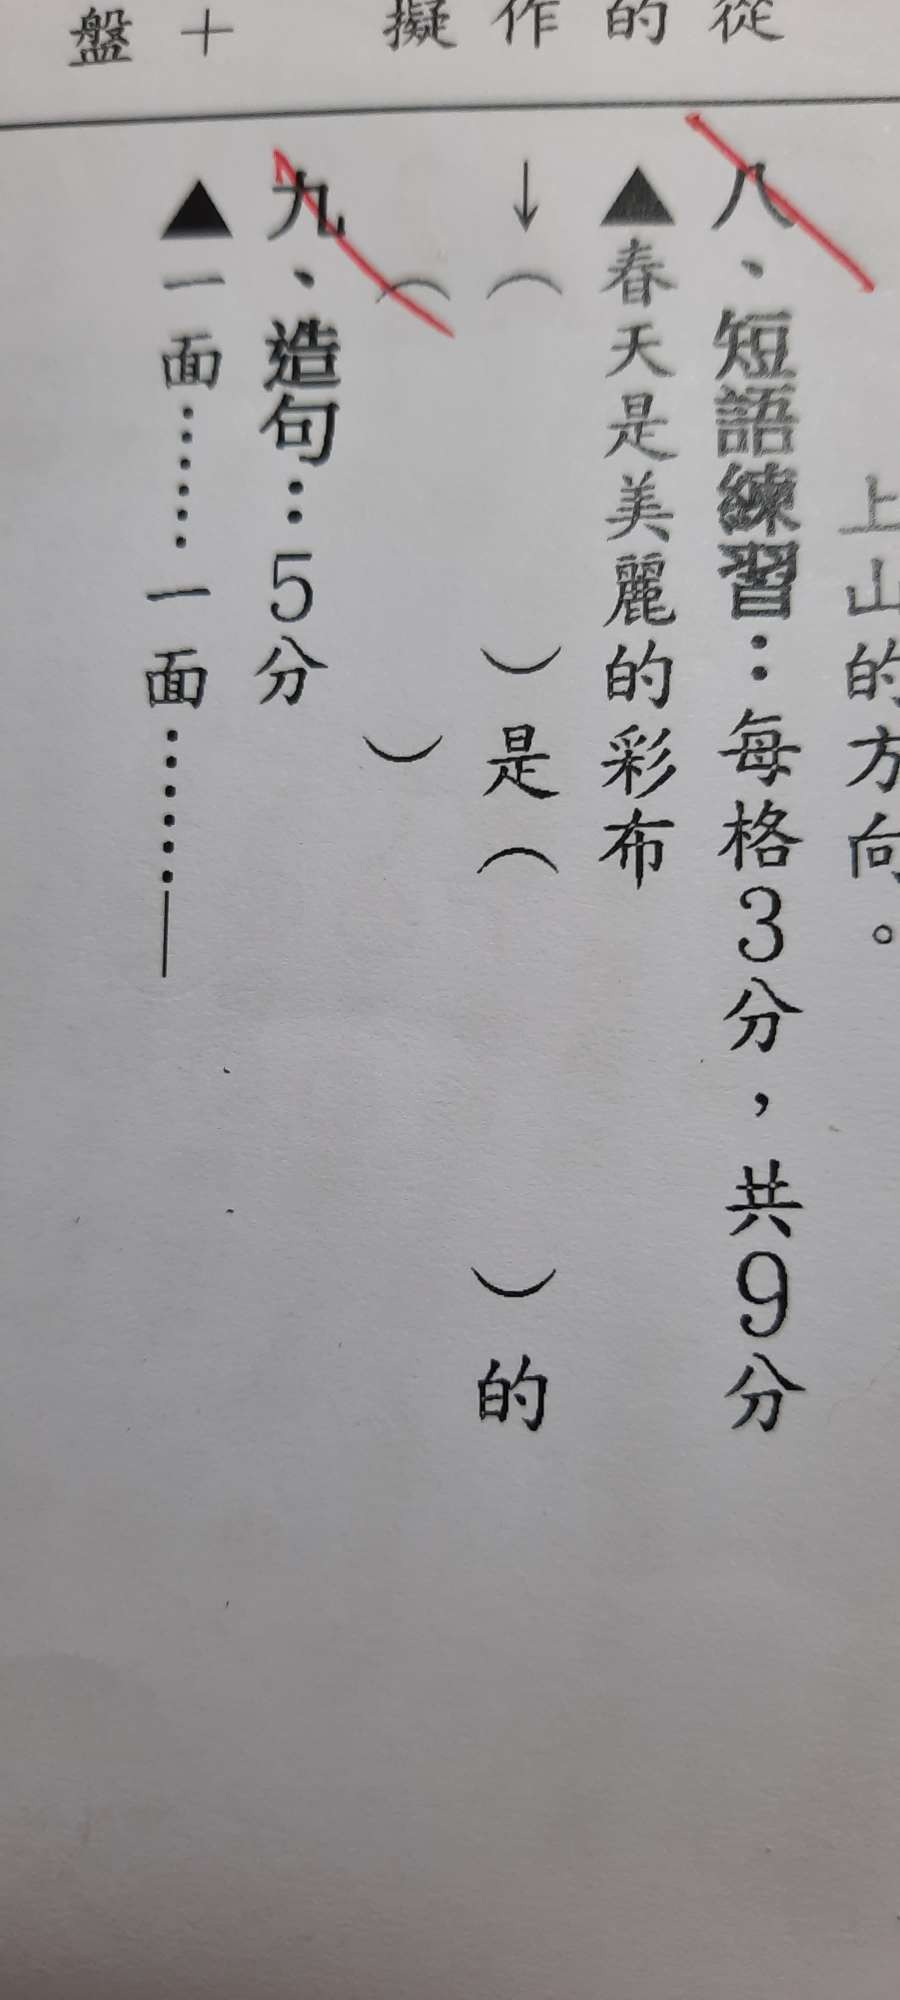 從
的
作
擬
十
盤
上山的方向。
八、短語練習：每格3分，共9分
▲春天是美麗的彩布
↓（　　　）是（　　　）的
（　　　）
九、造句：5分
▲一面……一面……—